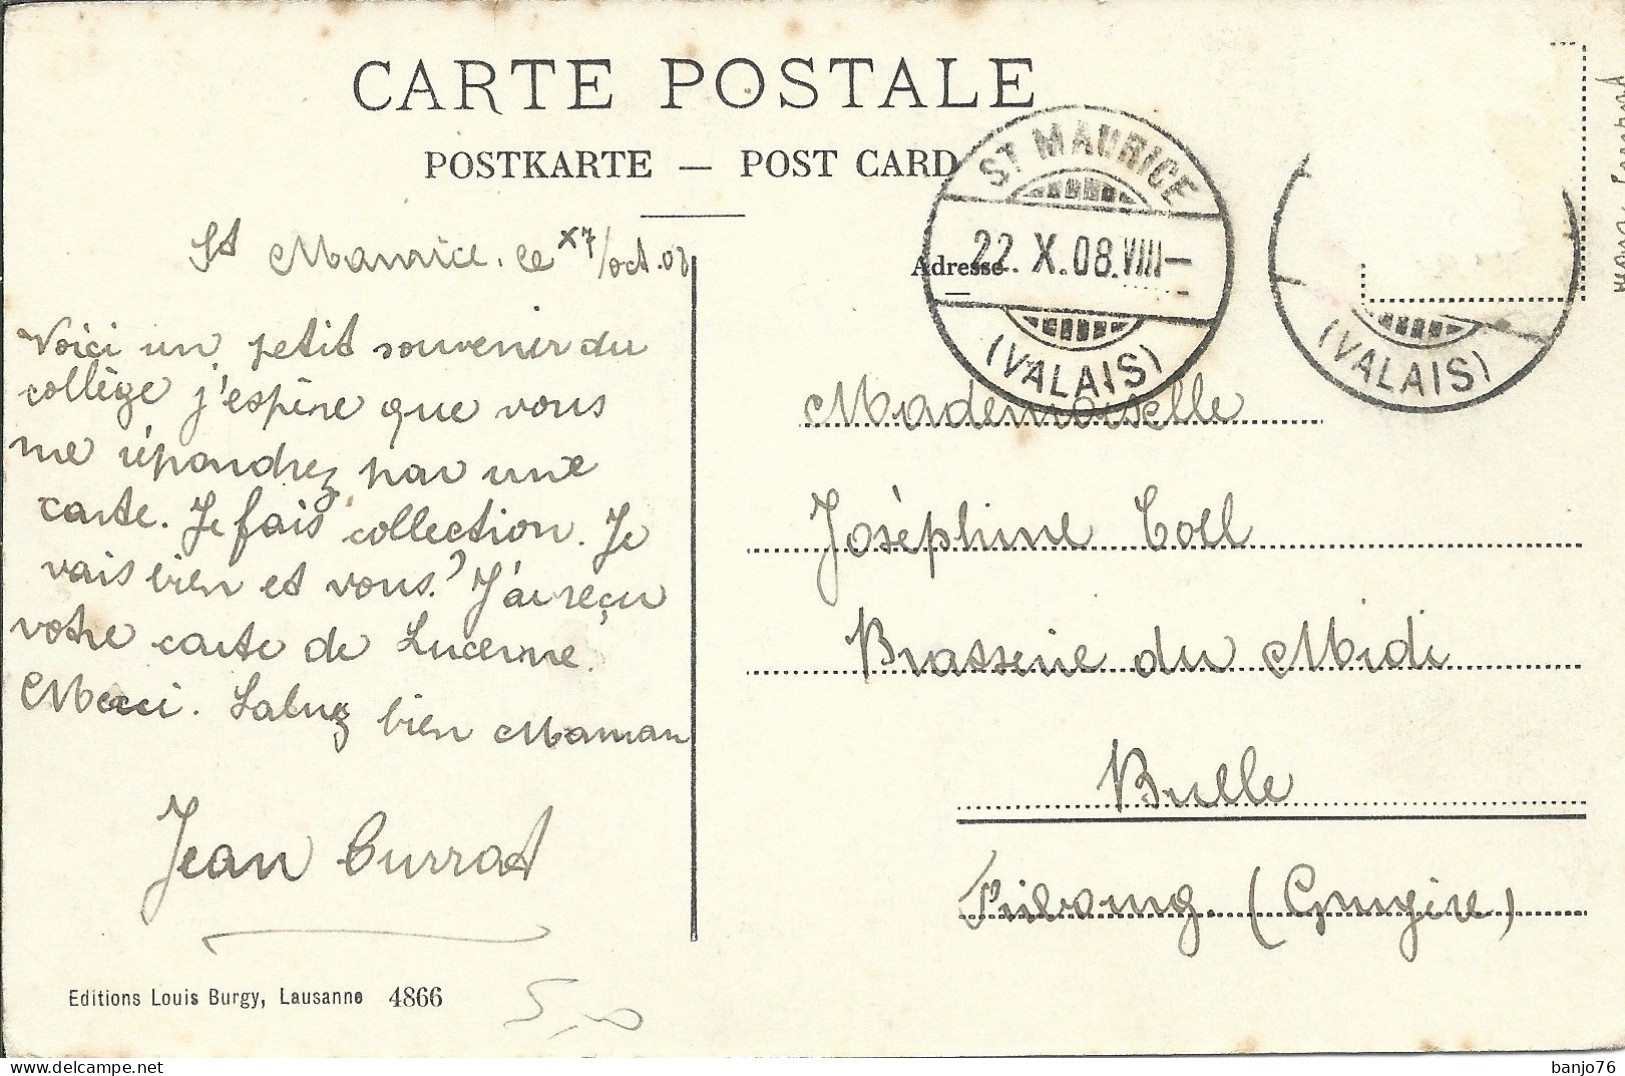 CARTE POSTALE
POSTKARTE — POST CARD
ST MAURICE
22.X.08.VIII—
(VALAIS)
(VALAIS)
Adresse
St Maurice. le X7/oct. 08
Voici un petit souvenir du
collège j'espère que vous
me répondrez par une
carte. Je fais collection. Je
vais bien et vous? J'ai reçu
votre carte de Lucerne.
Merci. Saluz bien Maman
Jean Currat
Mademoiselle
Joséphine Coll
Brasserie du Midi
Bulle
Fribourg. (Gruyère)
Editions Louis Burgy, Lausanne 4866
5,00
banjo76